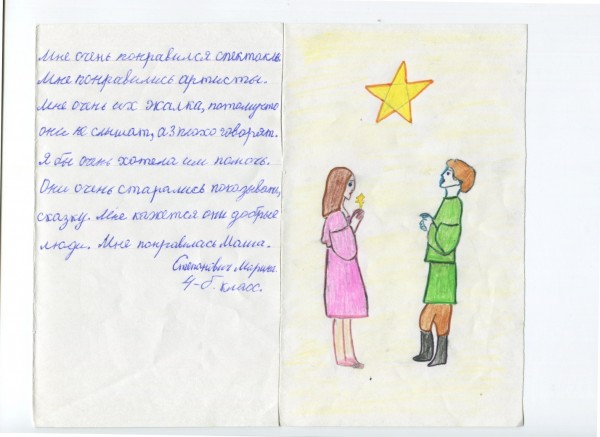 Мне очень понравился спектакль.
Мне понравились артисты.
Мне очень их жалка, потомушто
они не слышат, а 3 плохо говорят.
Я бы очень хотела им помочь.
Они очень старались показывать,
сказку. Мне кажется они добрые
люди. Мне понравилась Маша.
Степанович Марина.
4-б. класс.